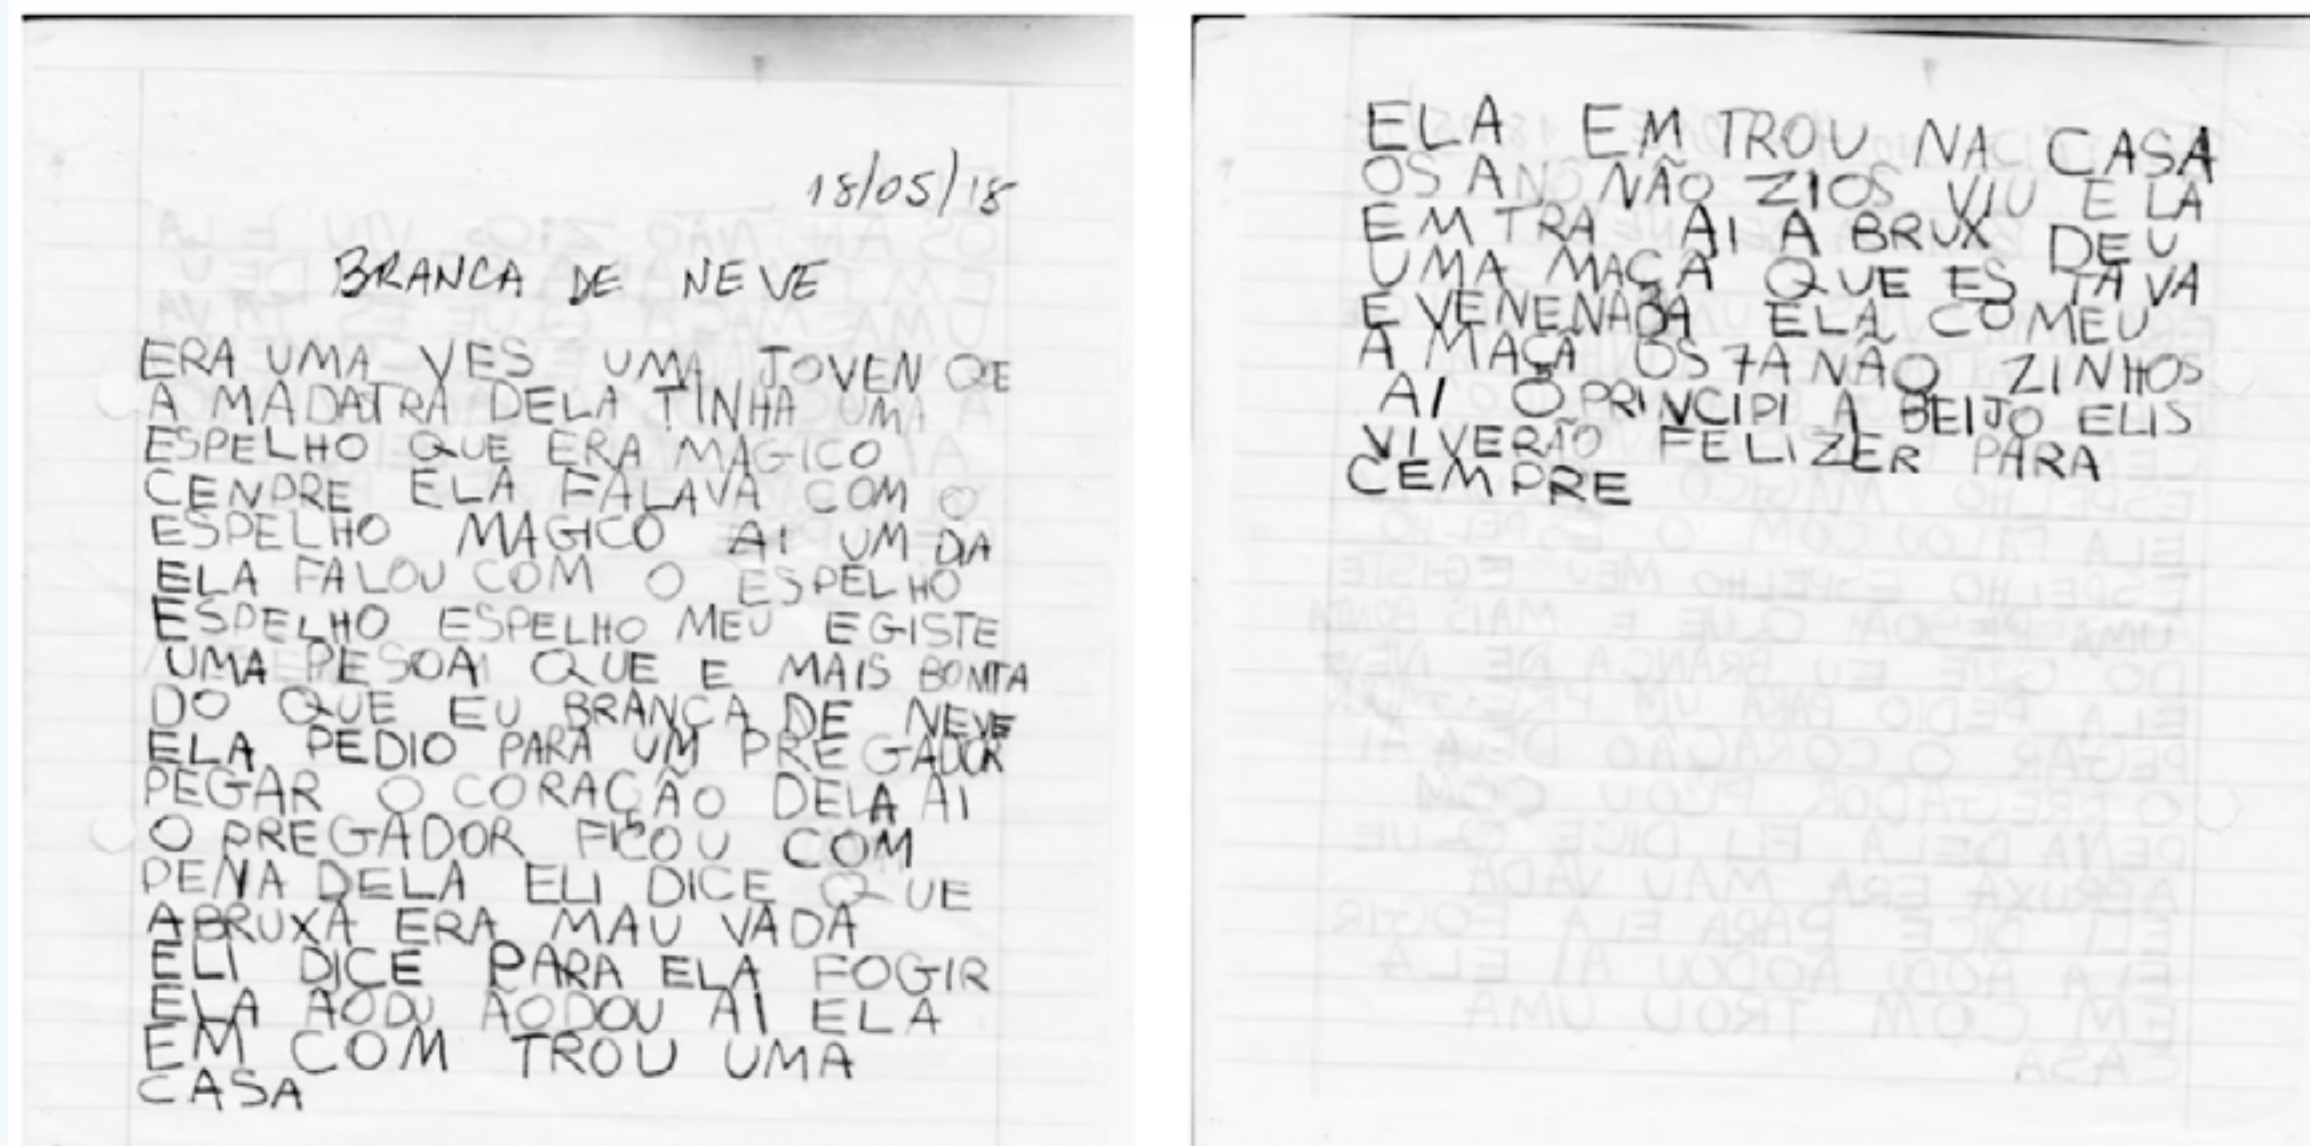 18/05/18
BRANCA DE NEVE
ERA UMA VES UMA JOVEN QE
A MADATRA DELA TINHA UMA
ESPELHO QUE ERA MAGICO
CENPRE ELA FALAVA COM O
ESPELHO MAGICO AI UM DIA
ELA FALOU COM O ESPELHO
ESPELHO ESPELHO MEU EGISTE
UMA PESOA QUE E MAIS BONTA
DO QUE EU BRANCA DE NEVE
ELA PEDIO PARA UM PREGADOR
PEGAR O CORAÇÃO DELA AI
O PREGADOR FICOU COM
PENA DELA ELI DICE QUE
ABRUXA ERA MAU VADA
ELI DICE PARA ELA FOGIR
ELA AODU AODOU AI ELA
EM COM TROU UMA
CASA
ELA EM TROU NA CASA
OS AN NÃO ZIOS VIU E LA
EM TRA AI A BRUX DEU
UMA MAÇA QUE ES TAVA
E VENENADA ELA COMEU
A MAÇA OS 7A NÃO ZINHOS
AI O PRINCIPI A BEIJO ELIS
VIVERÃO FELIZER PARA
CEMPRE